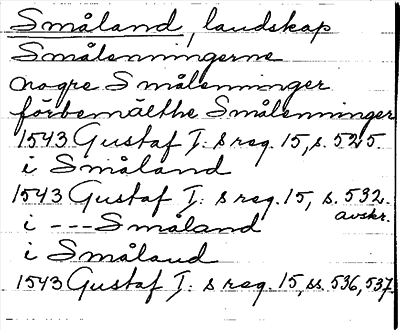 Småland, landskap
Smålenningerne
nogre Smålenninger
förbemälthe Smålenninger
1543 Gustaf I:s reg. 15, s. 525.
i Småland
1543 Gustaf I:s reg. 15, s. 532.
avskr.
i --- Småland
i Småland
1543 Gustaf I:s reg. 15, ss. 536, 537.